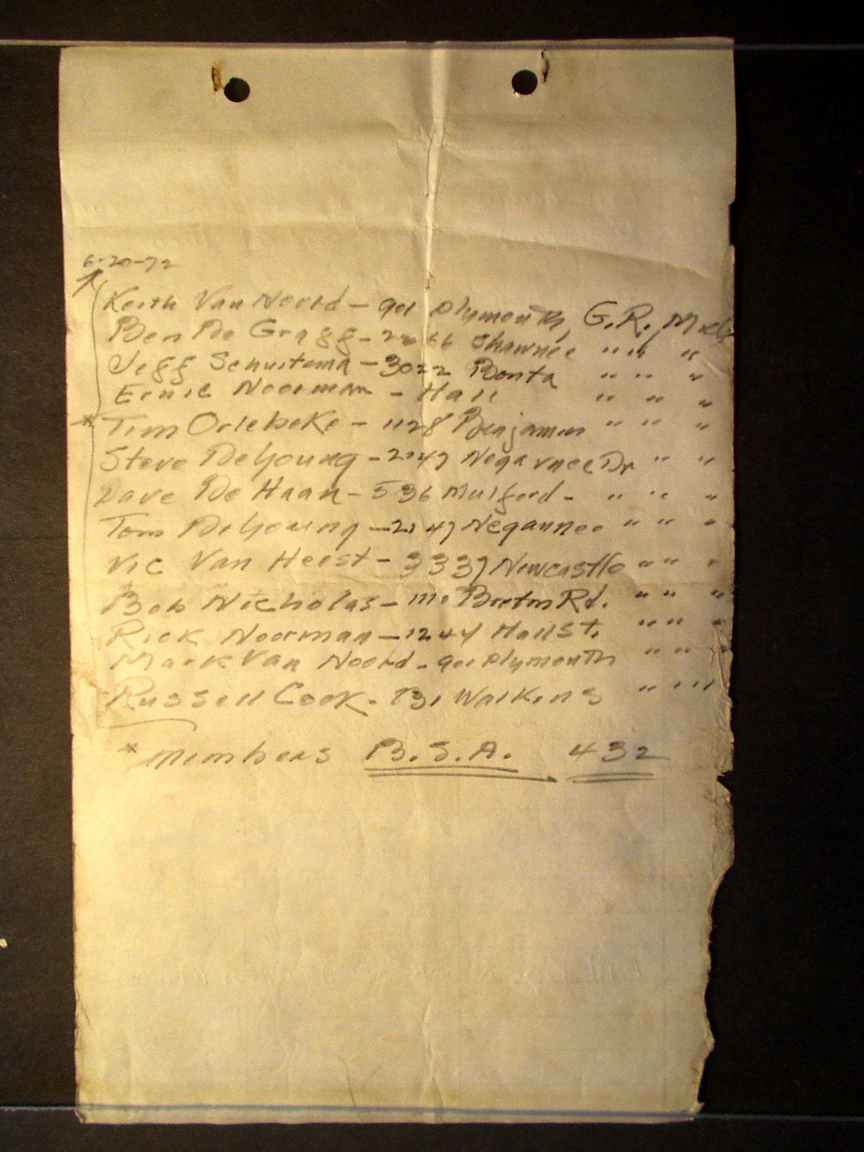 6-20-72
Keith Van Noord - 901 Plymouth, G.R. Mich
Ben De Graff - 2266 Shawnee " " "
Jeff Schuitema - 3022 Bonta " " "
Ernie Noorman - Hall " " "
* Tim Orlebeke - 1128 Benjamin " " "
Steve DeYoung - 2147 Negaunee Dr " " "
Dave De Haan - 536 Mulford - " " "
Tom DeYoung - 2147 Negaunee " " "
Vic Van Heest - 3337 Newcastle " " "
Bob Nicholas - Burton Rd. " " "
Rick Noorman - 1244 Hall St. " " "
Mark Van Noord - 901 Plymouth " " "
Russell Cook - Walkins " " "
* Members B.S.A. 432